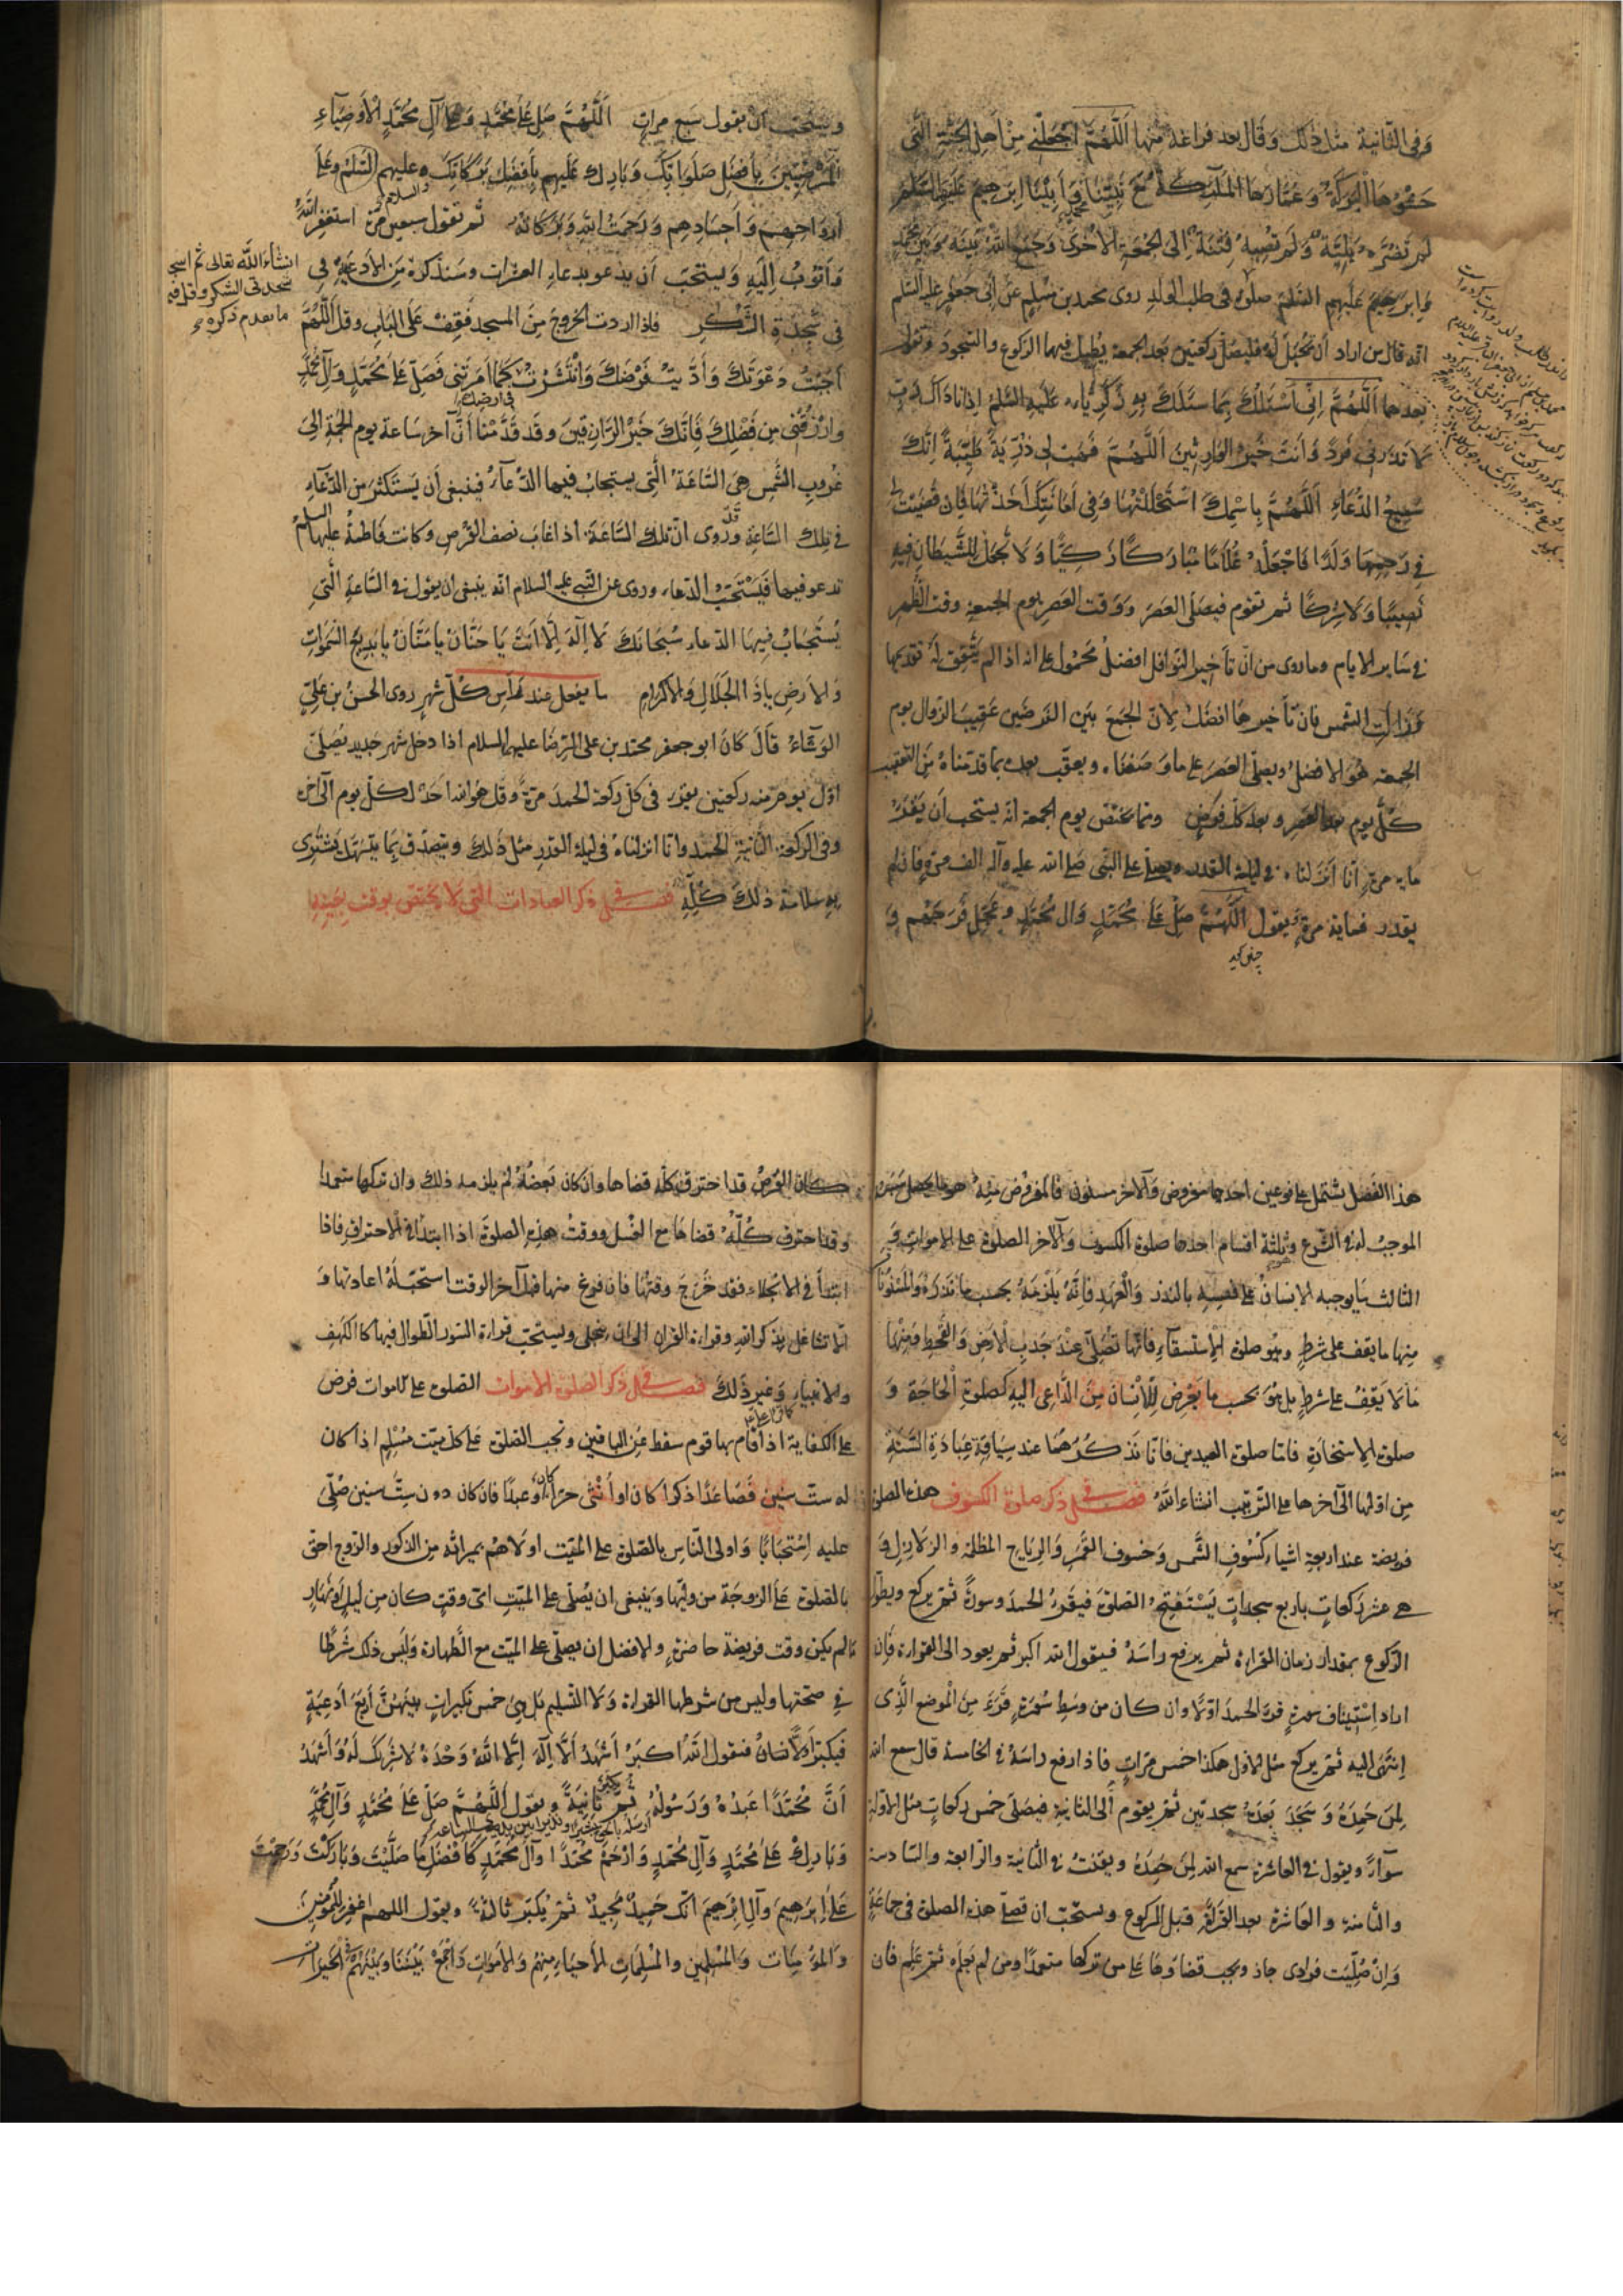 وَفي الثّانية مثل ذلك وَقال بعد فراغه منها اَللّهُمَّ اجْعَلْني مِنْ اَهلِ الجَنَّةِ الَّتى
حَشْوُهَا الْبَرَكَةُ وَعُمّارُهَا المَلٰئِكَةُ مَعَ نَبِيِّنا محمّدٍ وَاَبِيْنا اِبرَهيمَ عَلَيْهِمَا السَّلٰم
لم تَضُرّه بَلِيّة وَلَم تُصِبهُ فِتْنَةٌ اِلى الجُمُعَةِ الاُخْرى وَجَمَعَ اللهُ بَيْنَهُ وَبَيْنَ محمّدٍ
وَابرَهيمَ عَلَيهِمُ السَّلٰم صلوة في طلب الولد روى محمد بن مسلم عن ابي جعفر عليه السلم
انّه قال من اراد ان يُحْبَلَ لَهُ فليصلّ ركعتين بعد الجمعة يُطيل فيها الركوع والسّجود وَيقول
بعدهما اَللّهُمَّ اِنّى اَسْئَلُكَ بِما سَئَلَكَ بِهِ زَكَرِيّاء عَلَيهِ السَّلم اِذ نَادَاكَ رَبِّ
لا تَذَرْنى فَرْدًا وَاَنتَ خَيْرُ الوَارِثِينَ اَللّهُمَّ فَهَبْ لى ذُرِّيَةً طَيِّبَةً اِنَّكَ
سَمِيعُ الدُّعَاءِ اَللّهُمَّ بِاسْمِكَ اسْتَحْلَلْتُهَا وَفي اَمَانَتِكَ اَخَذْتُهَا فَاِن قَضَيْتَ
في رَحِمِهَا وَلَدًا فَاجْعَلْهُ غُلاَمًا مُبَارَكًا زَكِيًّا وَلاَ تَجْعَل لِلشَّيطَانِ فيهِ
نَصِيبًا وَلاَ شِرْكًا ثم تقوم فيصلّى العصرَ وَوَقت العَصرِ يوم الجمعة وقت الظّهر
في سَاير الايام وما روى من انّ تأخير النوافل افضل مَحْمُول على انه اذا لم يتّفق لَه تقديمها
وَزَالَتِ الشّمس فان تأخيرهَا افضل لاِنّ الجمع بين الفرضين عَقيبَ الزوال يوم
الجمعة هُوَ الافضل ويصلّى العصرَ على ما وصفناه ويعقّب بعده بما قدّمناه من التعقيب
كلّ يوم بعد العصر وبعد كل فرضٍ وممّا يختصّ يوم الجمعة انّه يستحب اَن يَقْرَأ
مايه مرّةٍ اِنّا اَنزلناه في ليلة القدر ويصلّى على النّبى صَلى الله عليه وآله الف مرّةٍ فان لم
يقدر فمايةَ مرّةٍ وَيقول اَللّهُمَّ صَلِّ عَلى مُحَمّدٍ وَال مُحَمّدٍ وعَجّل فَرَجَهُم وَ
وَيستحبّ ان يقول سَبع مراتٍ اَللّهُمَّ صَلِّ عَلى مُحَمّدٍ وَعَلى آلِ مُحَمّدٍ اْلاَوصِيَآءِ
المَرْضِيّينَ بِاَفضَلِ صَلَوَاتِكَ وَبَارِك عَلَيهِم بِاَفضَلِ بَرَكَاتِكَ وَعليهم السّلم وَعَلى
اَرْوَاحِهِم وَاَجسَادِهِم وَرَحمَتُ اللهِ وَبَرَكَاتُه ثم تقول سبعين مرّة استغفر اللهَ
والسلام
وَاَتُوبُ اِلَيْهِ وَيستحبّ اَن يدعو بدعاء العشرات وسَنذكره من الادعية في
انشاءالله تعالى ثم اسجد
سجدتى الشكر وقل فيه
ما تقدم ذكره
في سَجدَةِ الشّكر فاذا اردت الخروج مِنَ المسجد فَقِف عَلَى البَابِ وقل اللّهُمَّ
اَجَبْتُ دَعْوَتَكَ وَاَدَّيتُ فَرْضَكَ وَانْتَشَرْتُ كَمَا اَمَرتَنى فَصَلّ عَلى مُحَمّدٍ وَآلِ مُحَمّدٍ
في ارضك
وَارْزُقْنى مِن فَضْلِكَ فَاِنّكَ خَيْرُ الرَّازِقينَ وَقد قَدَّمْنا اَنَّ آخر سَاعة يوم الجُمعة الى
غُروبِ الشَّمسِ هى السَّاعَةُ الَّتى يستجابُ فيها الدّعآءُ فينبغى اَن يَسْتَكثِرَ مِن الدّعآءِ
في تلك السّاعةِ وَرُوى اَنّ تلكَ السَّاعَة اذ اغابَ نصف القُرص وكانت فَاطمةُ عليها السلم
تدعو فيها فَيَسْتَحَبّ الدّعاء وروى عن النّبى عليه السلام انّه ينبغى ان يقول في السّاعةِ الَّتى
يُستَجابُ فِيهَا الدعاء سُبحَانَكَ لاَ اِلٰهَ اِلاّ اَنتَ يَا حَنّانُ يا مَنّانُ يا بَديعَ السّمٰوَاتِ
وَالاَرضِ ياذَا الجَلالِ وَالاكرام ما يفعل عند رأس كلّ شهرٍ روى الحسنُ بن عَلِىّ
الوَشّاءُ قَالَ كَانَ ابو جعفر محمّد بن على الرّضَا عليهما السلام اذا دخل شهر جديد يُصَلّى
اوّل يومٍ منه ركعتين يقرء فى كلّ ركعة الحمدَ مرّةً وقل هو الله احَد لكلّ يوم الى آخره
وفى الركعة الثّانيةِ الحَمدَ وانّا انزلناهُ في ليلة القدرِ مثل ذلك ويتصدّق بِمَا يتسَهّل يَشترى
بهِ سَلامة ذلكَ كُلّهِ فصــل فى ذكر العبادات التى لا تختصّ بوقت بعَينِهِ
هذا الفَصل يشتمل على نوعين احدهما مفروض وَالآخر مسنون فالمفروض مِنهُ
الموجبُ له في الشّرع وثلثة اقسام احدها صلوة الكسوف وَالآخر الصلوة على الاموات وَ
الثالث مَا يوجبه الانسانُ على نفسِهِ بالنّذر وَالْعَهدِ فَاِنّهُ يَلْزمهُ بحسب ما نَذرَهُ وَالمسْنُونُ
منهَا ما يقف على شرطٍ وهو صلوة الاِستسقآءِ فَانّها تُصَلّى عندَ جَدبِ الارضِ وَالقَحطِ وَمِنْهَا
مَا لا يَقِفُ على شرطٍ بل هُوَ بحسب ما يَعْرض لِلاِنسانِ مِنَ الدَّاعِى اليهِ كصَلوةِ الْحَاجَةِ وَ
صلوة الاِستخارةِ فامّا صلوة العيدين فَانّا نَذكُرُهُمَا عند سِيَاقةِ عِبَادَةِ السَّنَةِ
مِن اوّلها الى آخرها على التّرتيب انشاءاللهُ فصــل فى ذكر صلوة الكسوف هذه الصلوة
فريضة عند اربعةِ اشياء كُسُوفِ الشّمس وَخسُوف القَمَرِ وَالرّياح المظلمة والزلازل وَ
هى عشر رَكعاتٍ باربع سجداتٍ يَسْتَفتِحُ الصلوةَ فَيَقرءُ الحمدَ وسورةً ثم يركع ويطوّل
الرّكوع بمقدار زمان القراءة ثم يرفع راسَهُ فيقول الله اكبر ثم يعود الى القراءة فَاِن
اراد اِستِينافَ سورةٍ قرءَ الحمدَ اوّلاً وان كان من وَسطِ سُورةٍ قَرءَ مِنَ الْموضع الَّذى
اِنتَهى اليه ثم يركع مثل الاوّل هكذا خمس مرّاتٍ فاذا رفع راسَهُ في الخامسة قال سمع الله
لِمَن حَمِدَهُ وَسَجَدَ بَعدَهُ سجدتين ثم يقوم الى الثانية فيصلّى خمس ركعاتٍ مثل الاولة
سوآءً ويقول في العاشرة سمع الله لمن حَمِدَهُ ويقنتُ في الثّانية والرّابعة والسّادسة
والثّامنة والعَاشرة بعد القراءة قبل الركوع ويستحبّ ان تصلّى هذه الصلوة فى جماعَةٍ
وَاِنْ صُلّيَت فرادى جاز ويجب قضاؤها على من تركها متعمّدًا ومن لم يَعلَم ثمّ عَلِم فان
كان القُرصُ قد احترق كلّه قضاها وان كان بَعضُهُ لم يلزمه ذلك وان تركها متعمدًا
وقد احترق كُلّهُ قضاهَا مع الغُسل ووقتُ هذِهِ الصلوةَ اذا ابتدأ في الاحتراقِ فاذا
ابتدأ في الانجلاء فقد خَرجَ وقتها فان فرغ منها قبل آخر الوقت استحبّ لهُ اعادتها وَ
اِلاّ تشاغل بذكر اللهِ وقراءة القران الى ان ينجلى ويستحبّ قراءة السّور الطّوال فيها كالكهف
والانبياء وَغير ذلك فصــل فى ذكر الصلوة الاموات الصّلوة على الاموات فرض
على الكفاية اذا قام بها قوم سقط عَن الباقين وتجب الصّلوة عَلى كلّ ميّت مُسلِم اذا كان
له ستّ سنين فَصَاعدًا ذكرا كان او اُنثى حرّا او عبدًا فان كان دون سِتّ سنين صُلّى
كان
عليه اِستحبَابًا وَاولى النّاس بالصّلوة على الميّت اولاهم بميراثه مِن الذكور والزّوج احقّ
بالصّلوة عَلى الزوجَة من وليّها وَينبغى ان يُصَلّى على الميّتِ اىّ وقتٍ كان مِن ليلٍ اونَهارٍ
مَا لم يكن وقت فريضة حاضرةٍ والافضل ان يصلّى على الميّت مع الطّهارة وَليس ذلك شَرطًا
في صحّتها وليس من شرطها القراءة وَلا التّسليم بَل هى خمس تكبيراتٍ بَينَهُنَّ اَربَع ادعِيَةٍ
فَيكبّر الاِنسانُ فيقول اللهُ اكبَرُ اَشهَدُ اَلاَّ اِلٰهَ اِلاّ اللهُ وَحْدَهُ لا شَرِيكَ لَهُ وَاَشهَدُ
اَنَّ مُحَمَّدًا عَبدُهُ وَرَسُولُهُ ثمّ ثَانِيَةً ويقول اللّهُمَّ صَلِّ عَلى مُحَمّدٍ وَآلِ مُحَمّدٍ
يكبّر
وَبَارِك عَلى مُحَمّدٍ وَآلِ مُحَمّدٍ وَارْحَمْ مُحَمّدًا وآلَ مُحَمّدٍ كَاَفضَلِ مَا صَلَّيْتَ وَبَارَكْتَ وَرَحِمْتَ
عَلى اِبرَهيمَ وَآلِ اِبرَهيمَ انّكَ حَميدٌ مَجِيدٌ ثمّ يُكَبّر ثالثةً ويقول اللهم اغفِر لِلْمُومِنينَ
وَالمُؤمِنَات وَالمُسْلِمِين وَالمُسْلِمَاتِ الاَحيَاءِ مِنهُم وَالاَموَاتِ وَاجْمَعْ بَيْنَنَا وَبَيْنَهُم في الخَيراتِ